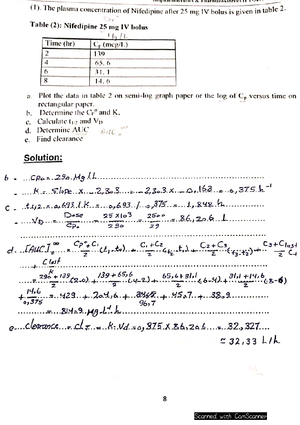 (1). The plasma concentration of Nifedipine after 25 mg IV bolus is given in table 2.
Table (2): Nifedipine 25 mg IV bolus
Time (hr) Cp (mcg/L)
2 139
4 65. 6
6 31. 1
8 14. 6
a. Plot the data in table 2 on semi-log graph paper or the log of Cp versus time on
rectangular paper.
b. Determine the Cp° and K.
c. Calculate t1/2 and VD
d. Determine AUC
e. Find clearance
Solution:
b - Cp° = 290 Mg/L
- K = Slope x 2.303 = - 2.303 x 0.163 = 0,375 h⁻¹
C - t1/2 = 0.693/K = 0,693 / 0,375 = 1,848 h
- VD = Dose/Cp° = 25x10³/290 = 2500/29 = 86,206 L
d. [AUC] = Cp°+C1/2 (t1-t0) + C1+C2/2 (t2-t1) + C2+C3/2
+ Clast/K
= 290+139/2 (2-0) + 139+65,6/2 (4-2) + 65,6+31,1/2 (6-4) + 31,1+14,6/2 (8-6)
+ 14,6/0,375 = 429 + 204,6 + 96,7 + 45,7 + 38,9
e - clearance = ClT = K.Vd = 0,375 x 86,206 = 32,327
≈ 32,33 L/h
8
Scanned with CamScanner